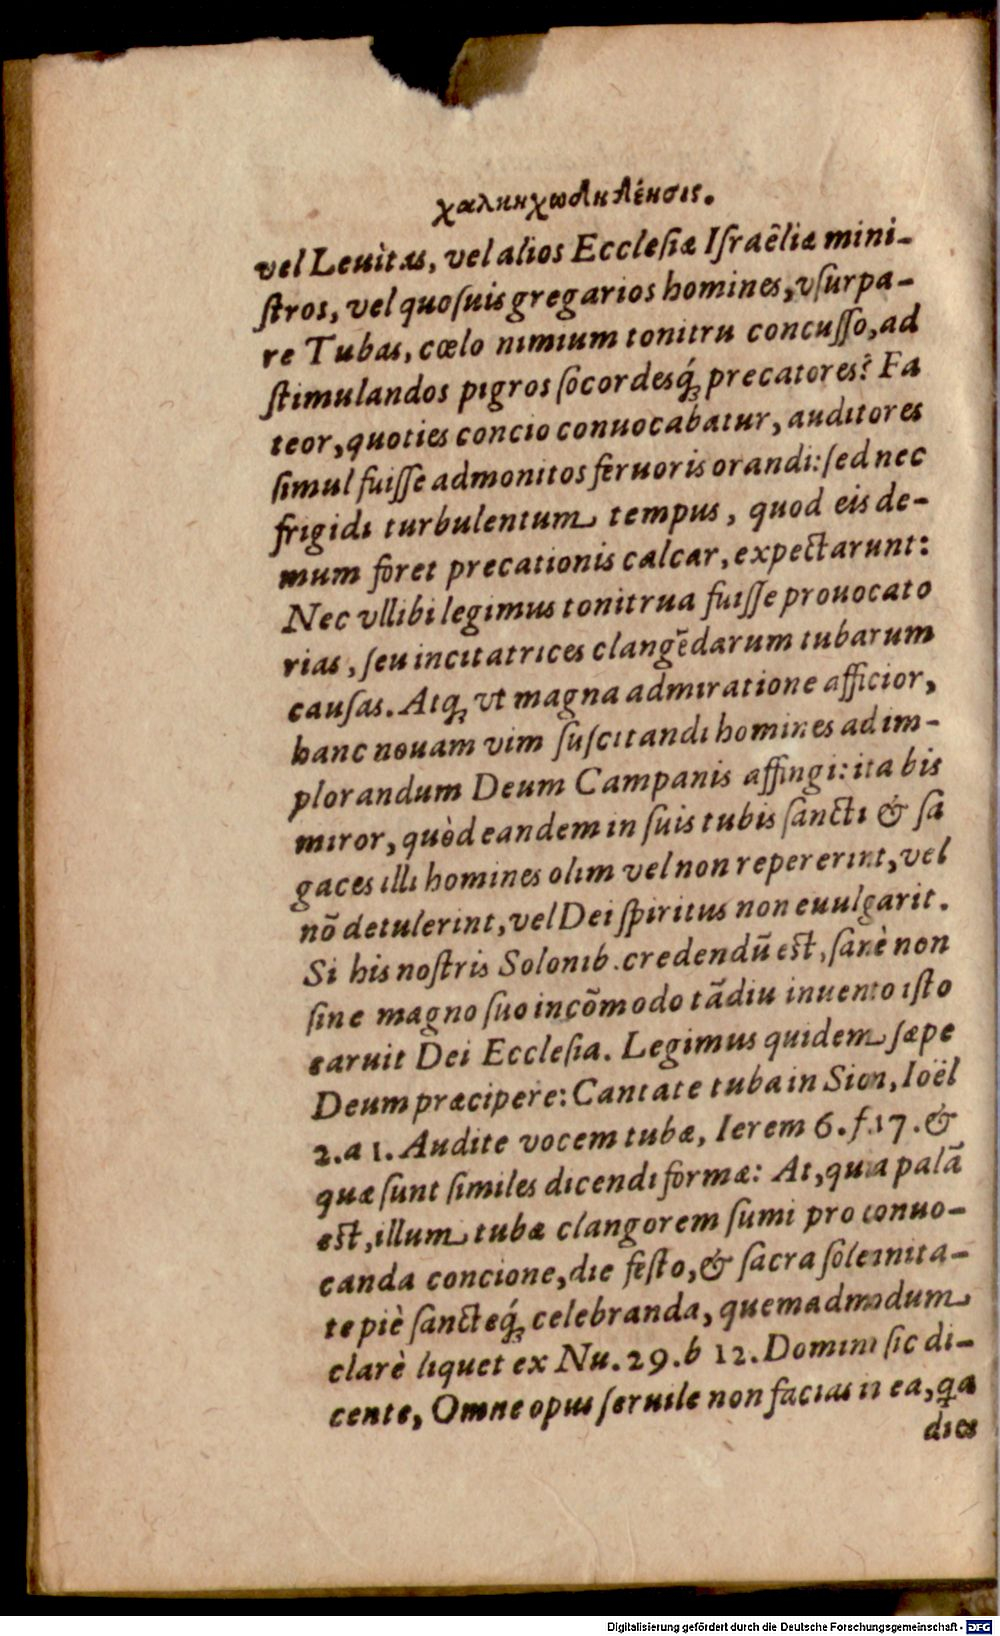 χαλκηχωδκδέησις.
vel Leuìtas, vel alios Ecclesiæ Israêliæ mini-
ſtros, vel quoſuis gregarios homines, vſurpa-
re Tubas, cœlo nimium tonitru concuſſo, ad
ſtimulandos pigros ſocordesq́; precatores? Fa
teor, quoties concio conuocabatur, auditores
ſimul fuiſſe admonitos feruoris orandi: ſed nec
frigidi turbulentum tempus, quod eis de-
mum foret precationis calcar, expectarunt:
Nec vllibi legimus tonitrua fuiſſe prouocato
rias, ſeu incitatrices clangẽdarum tubarum
cauſas. Atq; vt magna admiratione afficior,
hanc nouam vim ſuſcitandi homines ad im-
plorandum Deum Campanis affingi: ita bis
miror, quòd eandem in ſuis tubis ſancti & ſa
gaces illi homines olim vel non repererint, vel
nõ detulerint, vel Dei ſpiritus non euulgarit.
Si his noſtris Solonib. credendũ eſt, ſanè non
ſine magno ſuo incõmodo tãdiu inuento iſto
caruit Dei Eccleſia. Legimus quidem ſæpe
Deum præcipere: Cantate tuba in Sion, Ioël
2.a 1. Audite vocem tubæ, Ierem 6. f.17. &
quæ ſunt ſimiles dicendi formæ: At, quia palã
eſt, illum tubæ clangorem ſumi pro conuo-
canda concione, die feſto, & ſacra ſolemnita-
te piè ſancteq́; celebranda, quemadmodum
clarè liquet ex Nu. 29. b 12. Domini ſic di-
cente, Omne opus ſeruile non facias in ea, qa
dies
Digitalisierung gefördert durch die Deutsche Forschungsgemeinschaft - DFG